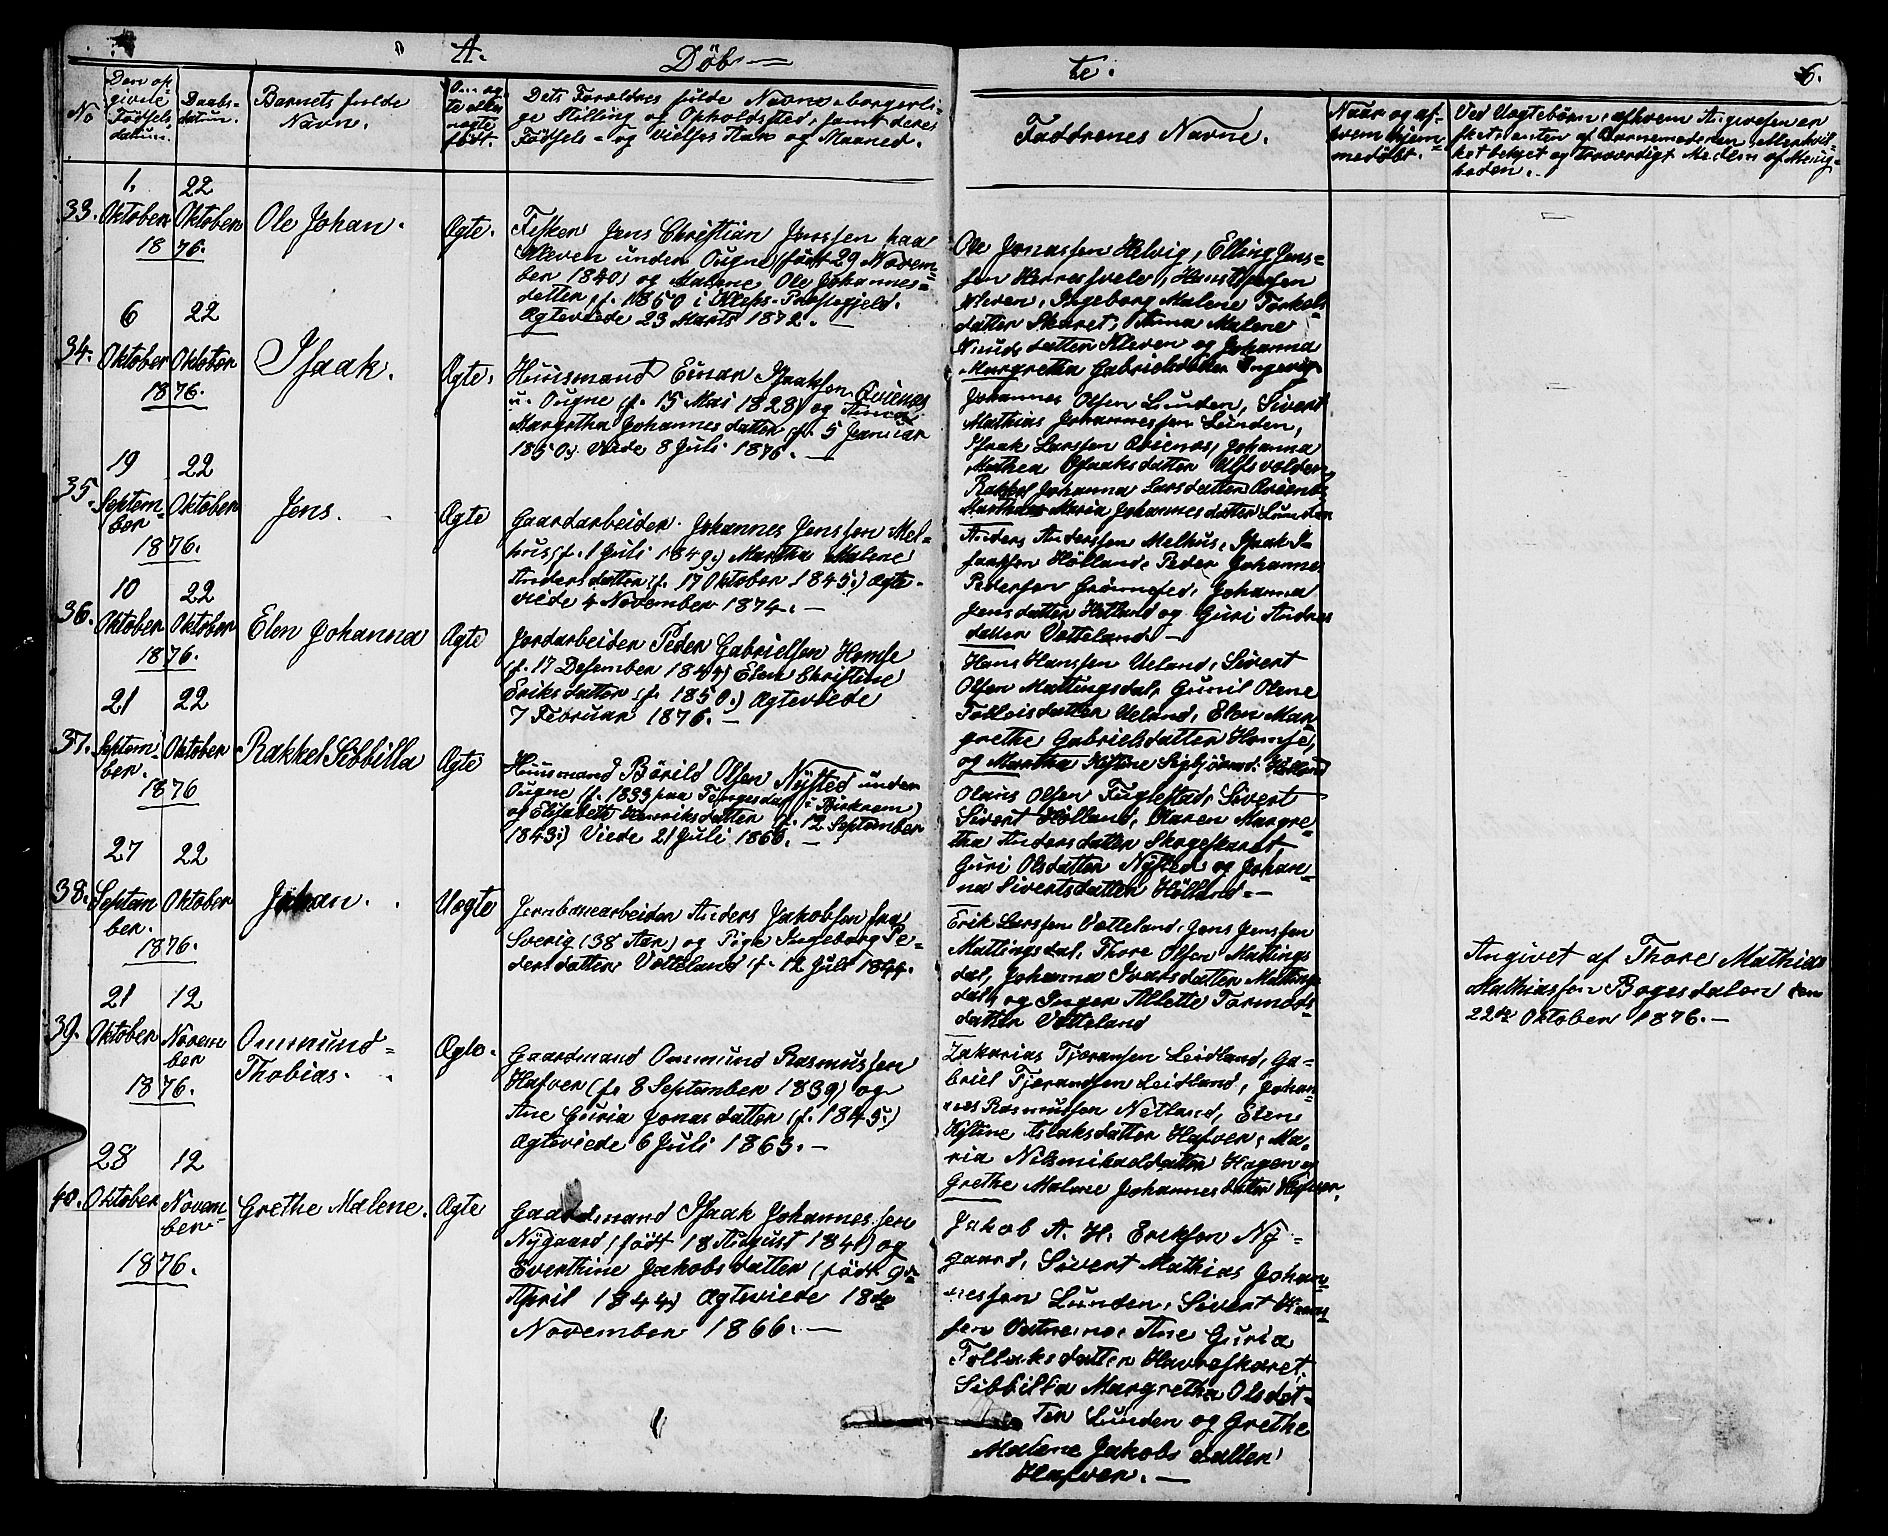 A. Döb- te. 6.
No
Den op-
givne
Födsels
datum.
Daabs-
datum.
Barnets fulde
Navn.
Om æg-
te eller
uægte
födt.
Dets Forældres fulde Navne borgerli-
ge Stilling og Opholdssted, samt deres
Födsels- og Vielses Aar og Maaned.
Faddrenes Navne.
Naar og af
hvem hjem-
medöbt.
Ved Uægtebörn, afhvem Angivelsen er
skeet, enten af Barnemoderen eller hvil-
ket betyet og troværdigt Medlem af Menig-
heden.
33.
1.
Oktober
22
Oktober
1876.
Ole Johan.
Ægte.
Fisker Jens Christian Jenssen paa
Kleven under Ougne (födt 29 Novem-
ber 1840) og Malene Ole Johannes-
datter, f. 1850 i Kleps Præstegjeld.
Ægteviede 23 Marts 1872. —
Ole Jonassen Helvig, Elling Jens-
sen Herresvele, Hans
Kleven, Ingeborg Malene Torkels
datter Skaret, Anna Malene
Knuds datter Kleven og Johanna
Margretha Gabrielsdatter
34.
6
Oktober
22
Oktober
1876.
Isaak.
Ægte.
Huusmand Einar Isaksen Qvienes
u. Ougne (f. 15 Mai 1828) og Anna
Margretha Johannesdatter (f. 5 Januar
1850) Viede 8 Juli 1876. —
Johannes Olsen Lunden, Sivert
Mathias Johannessen Lunden,
Isaak Larssen Qvienes, Johanna
Mathea Isaaksdatter
Rakkel Johanna Larsdatter Qvienes
Martha Maria Johannesdatter Lunden
35.
19
Septem-
ber
22
Oktober
1876.
Jens.
Ægte
Gaardarbeider Johannes Jenssen Mel-
hus (f. 1 Juli 1849.) Martha Malene
Andersdatter (f. 17 Oktober 1845.) Ægte-
viede 4 November 1874. —
Anders Anderssen Melhus, Isaak I-
saaksen Hölland, Peder Johannes
Pedersen Johanna
Jensdatter Hetland og Guri Andres
datter Vatteland. —
36.
10
Oktober
22
Oktober
1876.
Elen Johanna
Ægte
Jordarbeider Peder Gabrielsen Homse
(f. 17 Desember 1844) Elen Christine
Eriksdatter (f. 1850.) Ægteviede
7 Februar 1876. —
Hans Hanssen Ueland, Sivert
Olsen Mattingsdal, Gunil Olene
Tolleisdatter Ueland, Elen Mar-
grethe Gabrielsdatter Homse,
og Martha Kistine Sigbjörnsd. Hölland
37.
21
Septem-
ber.
22
Oktober
1876
Rakkel Sibbilla
Ægte
Huusmand Börild Olsen Nysted under
Ougne (f. 1833 paa Tengesdal i Birkrem)
og Elisabeth Henriksdatter (f. 12 September
1843.) Viede 21 Juli 1866. —
Olaus Olsen Fuglestad, Sivert
Sivert Hölland, Karen Margre-
tha Andersdatter Skogeskaret,
Guri Olsdatter Nysted og Johan-
na Sivertsdatter Hölland. —
38.
27
Septem
ber.
22
Oktober
1876.
Johan.
Uægte
Jernbanearbeider Anders Jakobsen fra
Sverig (38 Aar) og Pige Ingeborg Pe-
dersdatter Vatteland (f. 12 Juli 1844.
Erik Larssen Vatteland, Jens Jenssen
Mattingsdal, Thore Olsen Mattings
dal, Johanna Ivarsdatter Mattings
dal, og Inger Allette Tormods-
datter Vatteland
Angivet af Thore Mathias
Mathiassen Bogesdalen den
22de Oktober 1876. —
39.
21
Oktober
12
Novem
ber
1876.
Ommund-
Thobias.
Ægte.
Gaardmand Ommund Rasmussen
Hafver (f. 8 September 1839) og
Ane Guria Jonasdatter (f. 1845.)
Ægteviede 6 Juli 1863. —
Zakarias Tjöransen Leidland, Ga-
briel Tjöransen Leidland, Johan-
nes Rasmussen Netland, Elen
Kistine Aslaksdatter Hafver, Ma-
ria Nilsmikaldatter Hagen og
Grethe Malene Johannesdatter Hafver.
40.
28
Oktober
12
Novem-
ber
1876.
Grethe Malene.
Ægte
Gaardmand Isaak Johannessen
Nygaard, (födt 18 August 1841) og
Everthine Jakobsdatter (födt 9de
April 1844) Ægteviede 18de
November 1866. —
Jakob A. H. Eriksen Ny-
gaard, Sivert Mathias Johan-
nessen Lunden, Sivert
sen Ane Guria
Tollaksdatter Havreskaret,
Sibbilla Margretha Olsdat-
ter Lunden og Grethe
Malene Jakobsdatter
Hafver. —